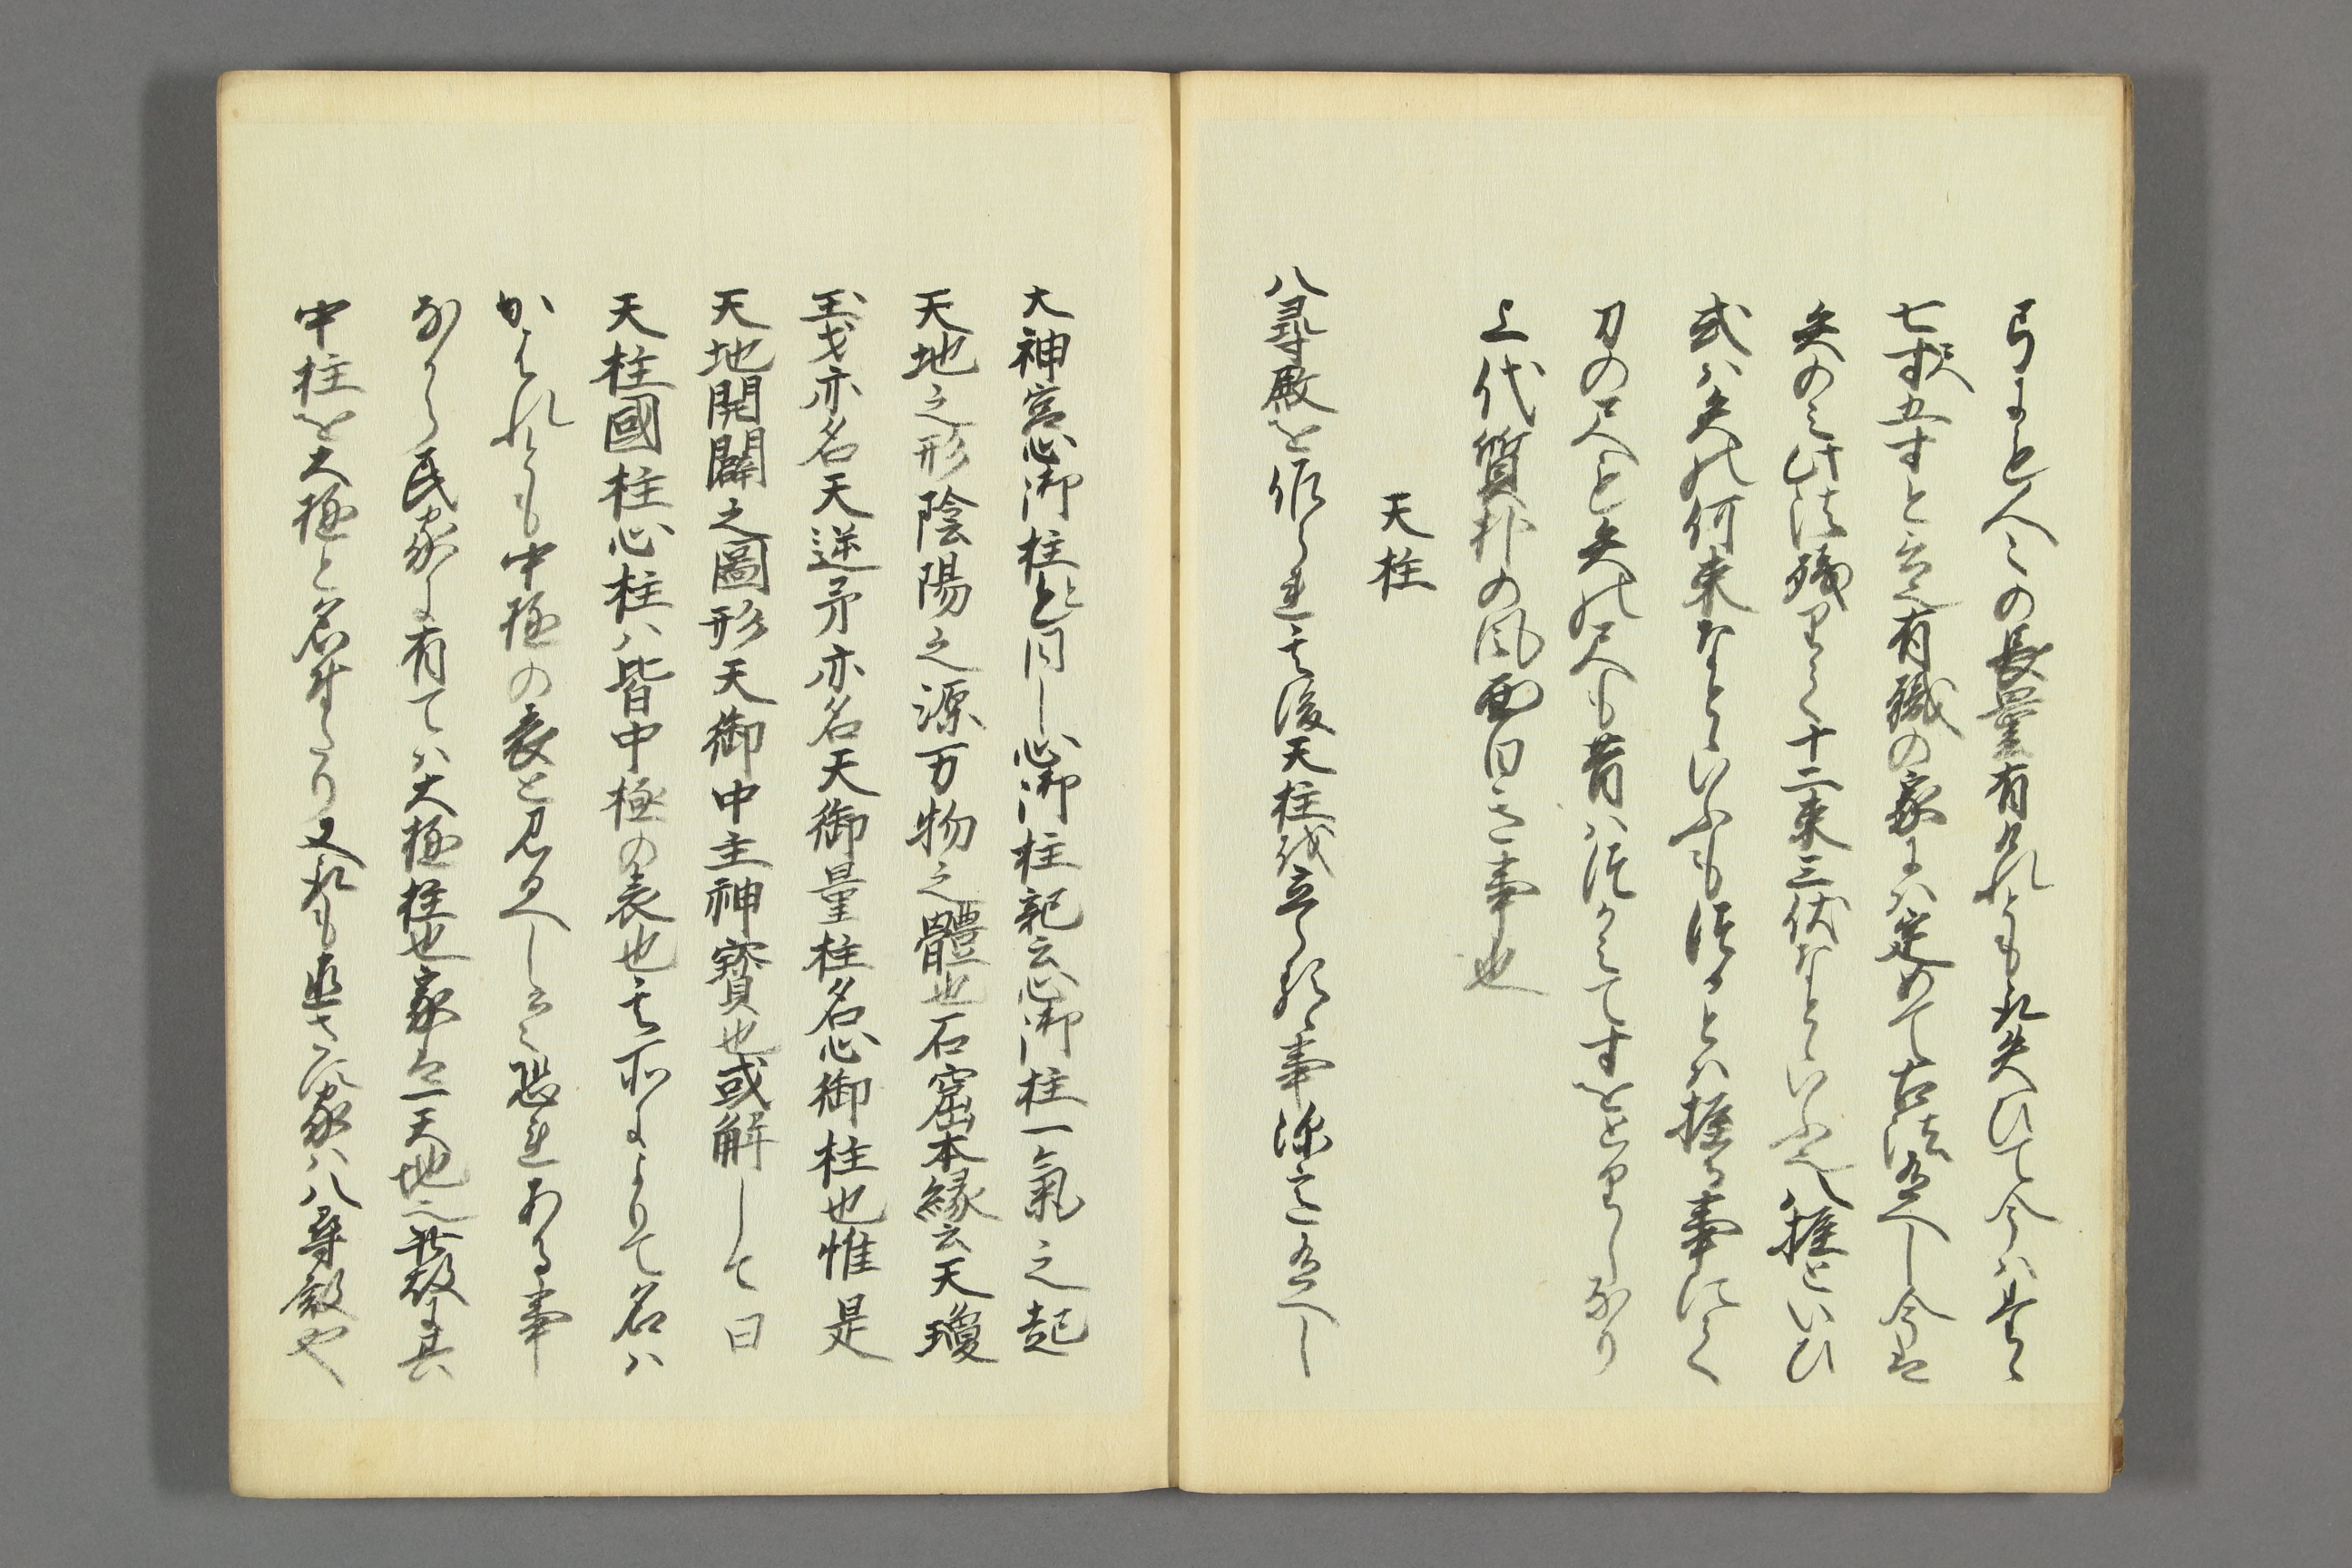 弓も人々の長量有けれとも取失ひて今ハ其まゝ
七尺五寸と云有職の家にハ定めて古法有へし今は
矢のみ此法残りて十二束三伏なといふ人権といひ
或ハ矢の何束なといふも皆とハ握る事にて
刀の尺と矢の尺も昔ハてすをとりしなり
上代質朴の風面白き事也
天柱
八尋殿を作られ其後天柱を立る事深意有へし
大神宮心御柱と同し心御柱記云心御柱一氣之起
天地之形陰陽之源万物之體也石窟本縁云天瓊
玉戈亦名天逆矛亦名天御量柱名心御柱也惟是
天地開闢之圖形天御中主神寳也或解して曰
天柱國柱心柱ハ皆中極の表也其所によりて名ハ
かはれとも中極の表と見るへし云々恐れある事
なから民家に有てハ大極柱也家は一天地也故に其
中柱を大極と名付たり又も直さす家ハ八尋殿や